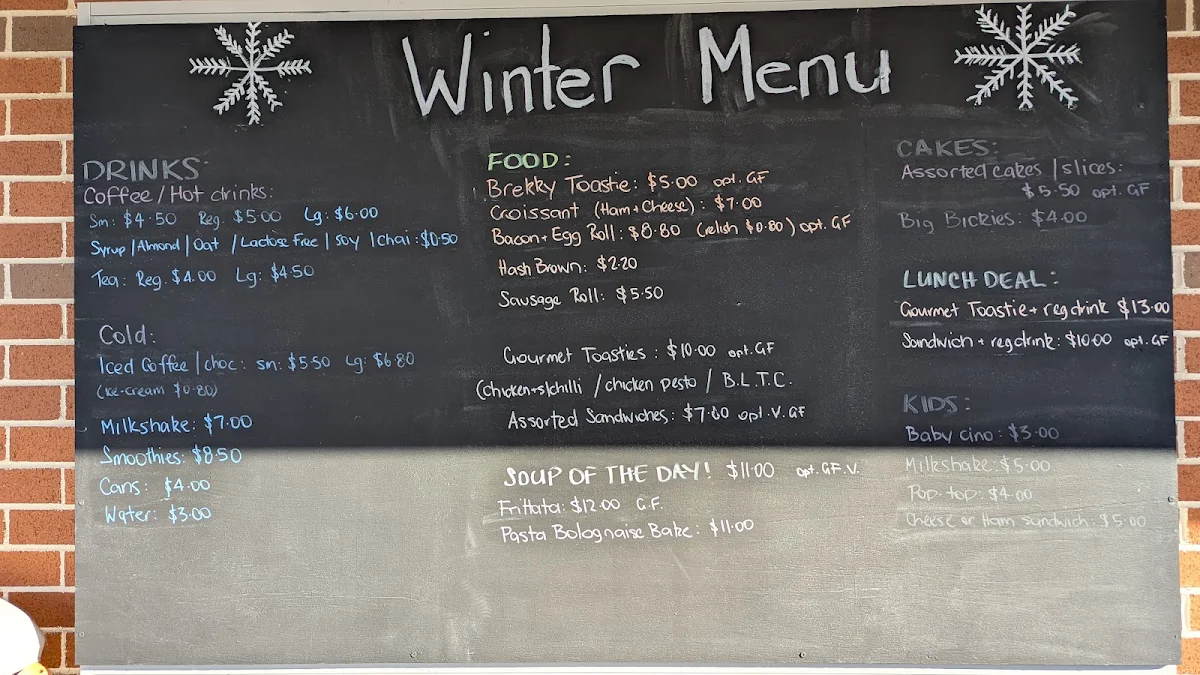 Winter Menu
DRINKS:
Coffee / Hot drinks:
Sm: $4.50 Reg. $5.00 Lg: $6.00
Syrup / Almond / Oat / Lactose Free / Soy / Chai: $0.50
Tea: Reg. $4.00 Lg: $4.50
Cold:
Iced Coffee / choc: sm: $5.50 Lg: $6.80
(Ice-cream $0.80)
Milkshake: $7.00
Smoothies: $8.50
Cans: $4.00
Water: $3.00
FOOD:
Brekky Toastie: $5.00 opt. GF
Croissant (Ham + Cheese): $7.00
Bacon + Egg Roll: $8.80 (relish $0.80) opt. GF
Hash Brown: $2.20
Sausage Roll: $5.50
Gourmet Toasties: $10.00 opt. GF
(Chicken + s/chilli / chicken pesto / B.L.T.C.
Assorted Sandwiches: opt. V. GF
SOUP OF THE DAY! $11.00 opt. GF. V.
Frittata: $12.00 G.F.
Pasta Bolognaise Bake: $11.00
CAKES:
Assorted cakes / slices:
$5.50 opt. GF
Big Bickies: $4.00
LUNCH DEAL:
Gourmet Toastie + reg drink $13.00
Sandwich + reg drink: $10.00 opt. GF
KIDS:
Baby cino: $3.00
Milkshake: $5.00
Pop top: $4.00
Cheese or Ham sandwich: $5.00